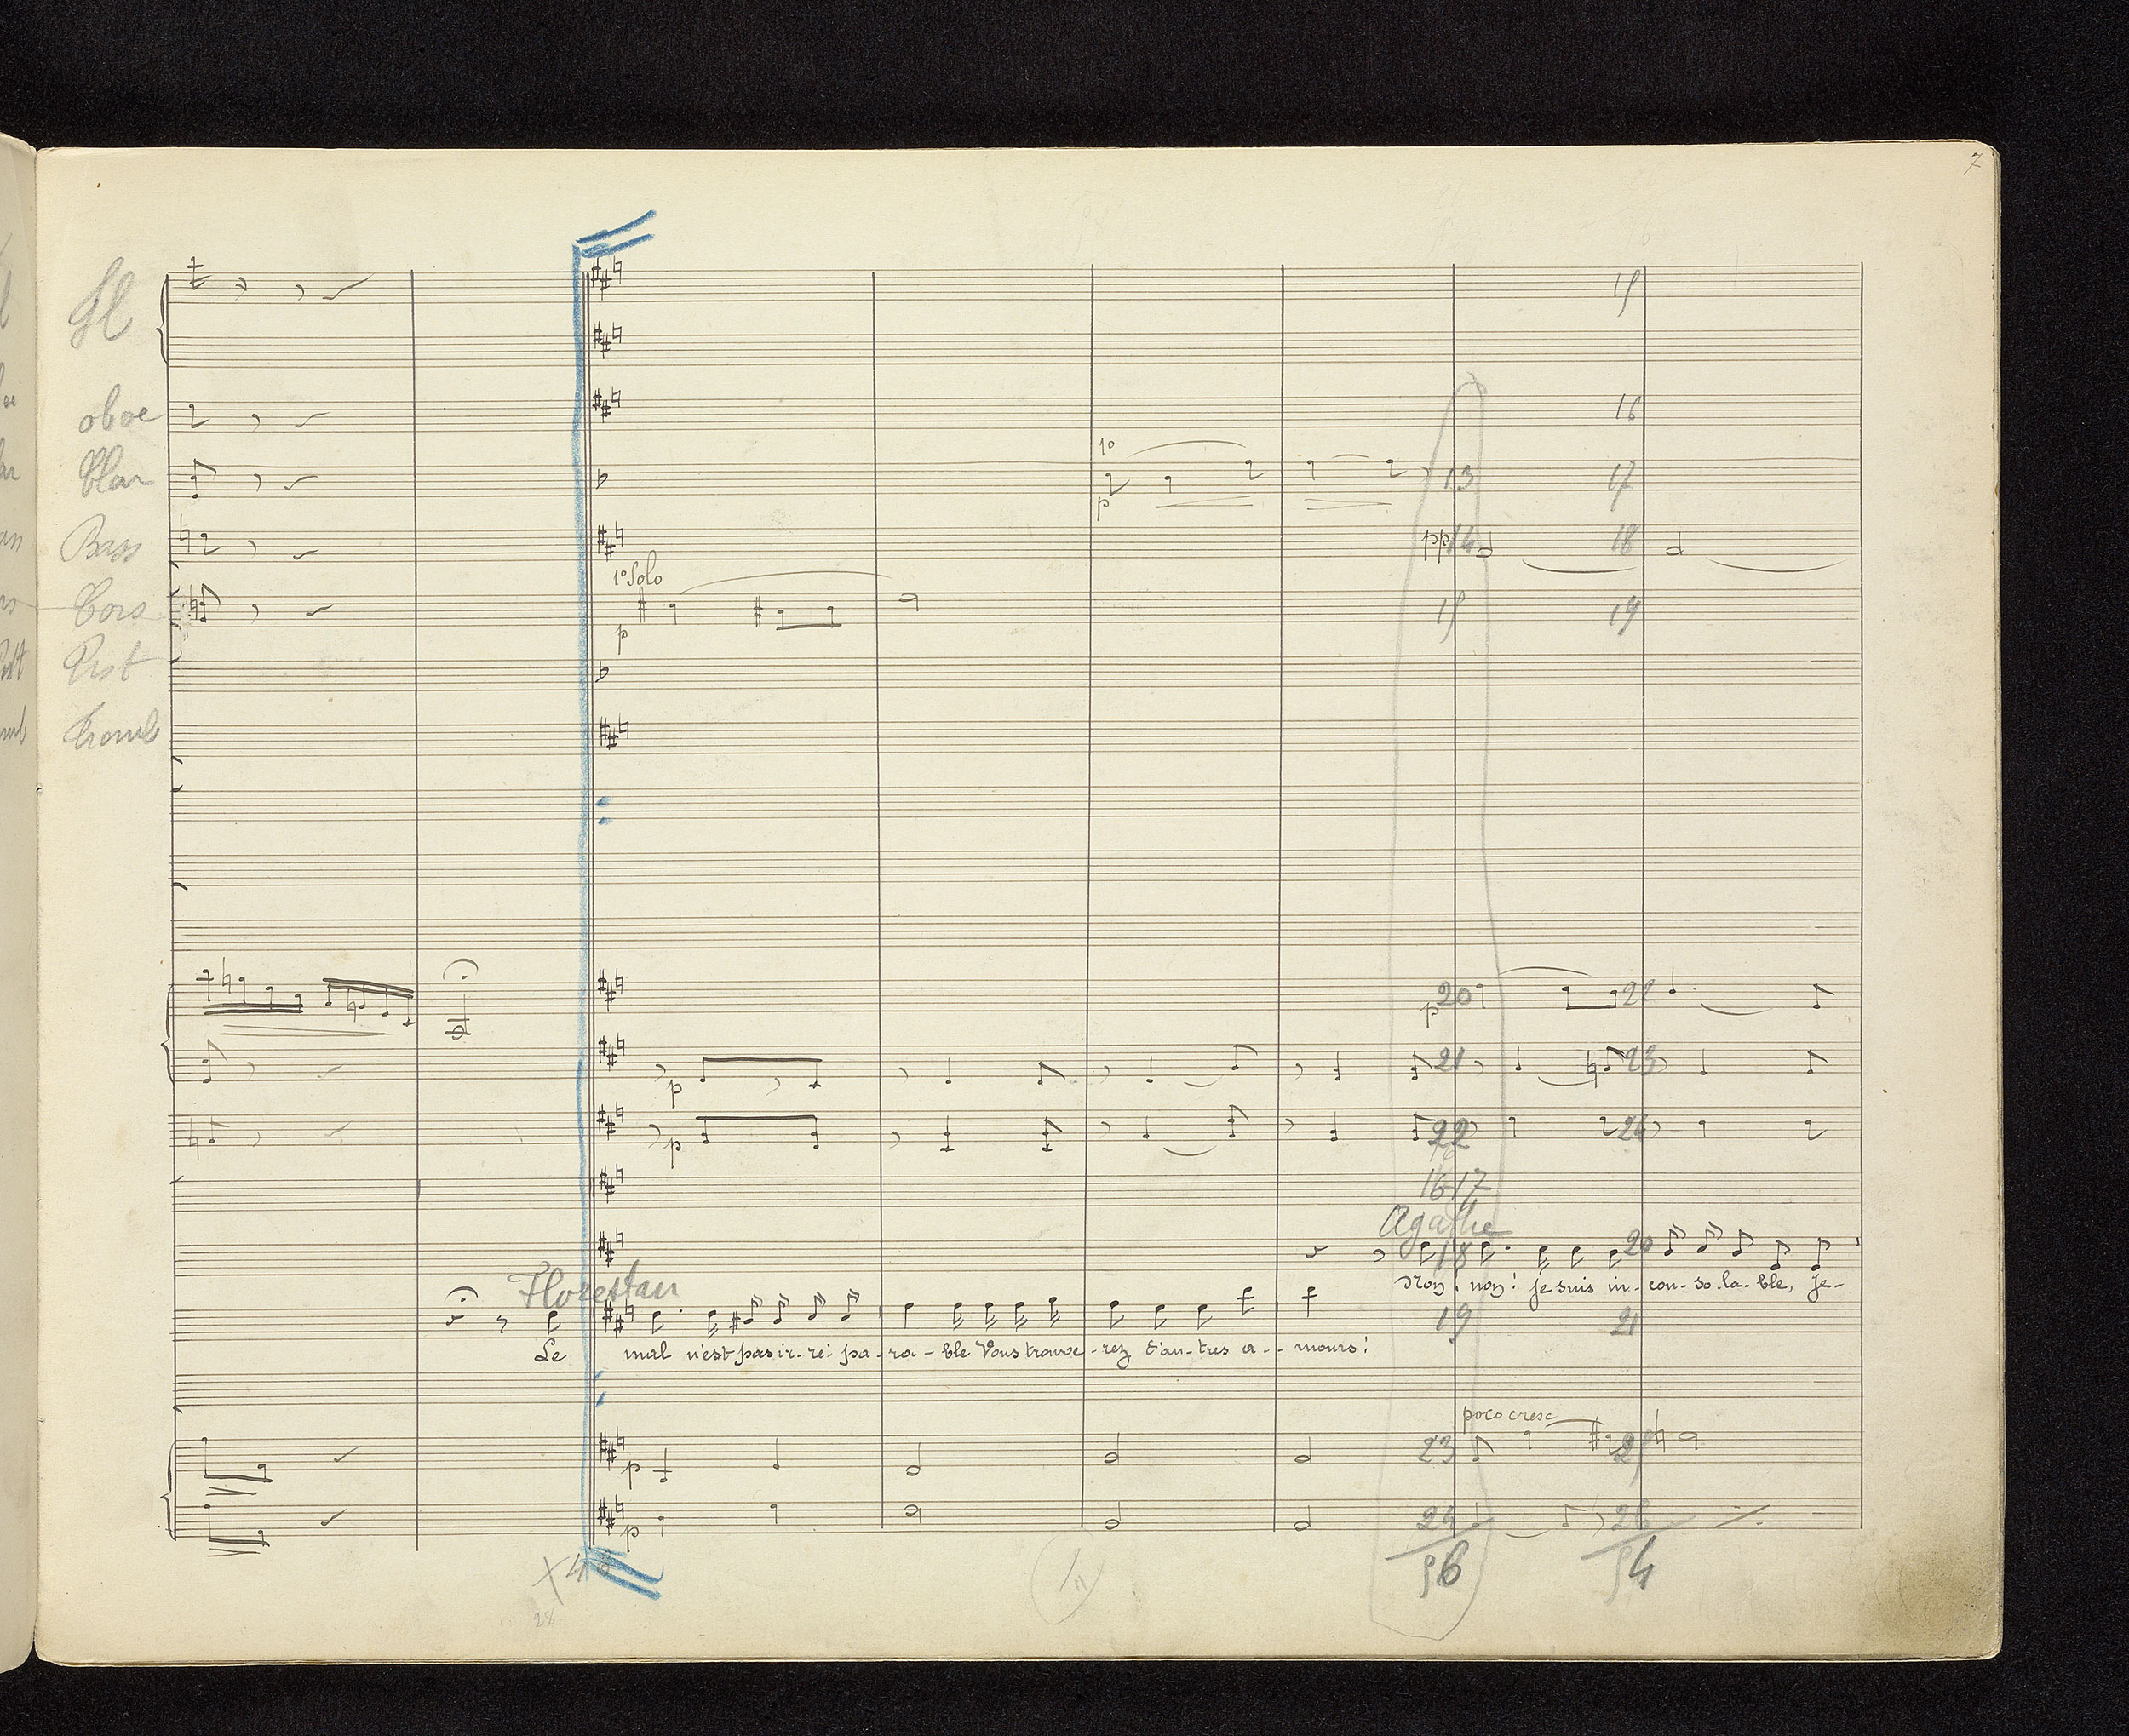 7
Fl
oboe
Clar
Bass
Cors
Pist
Tromb
15
16
1º
p
13
17
pp 14
18
1º Solo
p
15
19
p 20
22
p
21
23
p
22
24
16 17
Agathe
18
20
Non, non! je suis in-con-so-la-ble, je-
Florestan
19
21
Le mal n'est pas ir-ré-pa-ra-ble Vous trouve-rez d'au-tres a-mours!
poco cresc
p
23
p
24
26
56
54
28